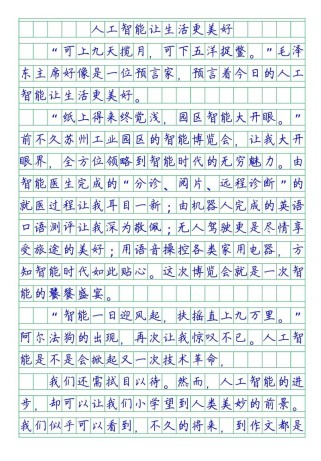 人工智能让生活更美好
“可上九天揽月，可下五洋捉鳖。”毛泽
东主席好像是一位预言家，预言着今日的人工
智能让生活更美好。
“纸上得来终觉浅，园区智能大开眼。”
前不久苏州工业园区的智能博览会，让我大开
眼界，全方位领略到智能时代的无穷魅力。由
智能医生完成的“分诊、阅片、远程诊断”的
就医过程让我耳目一新；由机器人完成的英语
口语测评让我深为敬佩；无人驾驶更是尽情享
受旅途的美好；用语音操控各类家用电器，方
知智能时代如此贴心。这次博览会就是一次智
能的饕餮盛宴。
“智能一日迎风起，扶摇直上九万里。”
阿尔法狗的出现，再次让我惊叹不已。人工智
能是不是会掀起又一次技术革命，
我们还需拭目以待。然而，人工智能的进
步，却可以让我们小学望到人类美妙的前景。
我们似乎可以看到，不久的将来，到作文都是